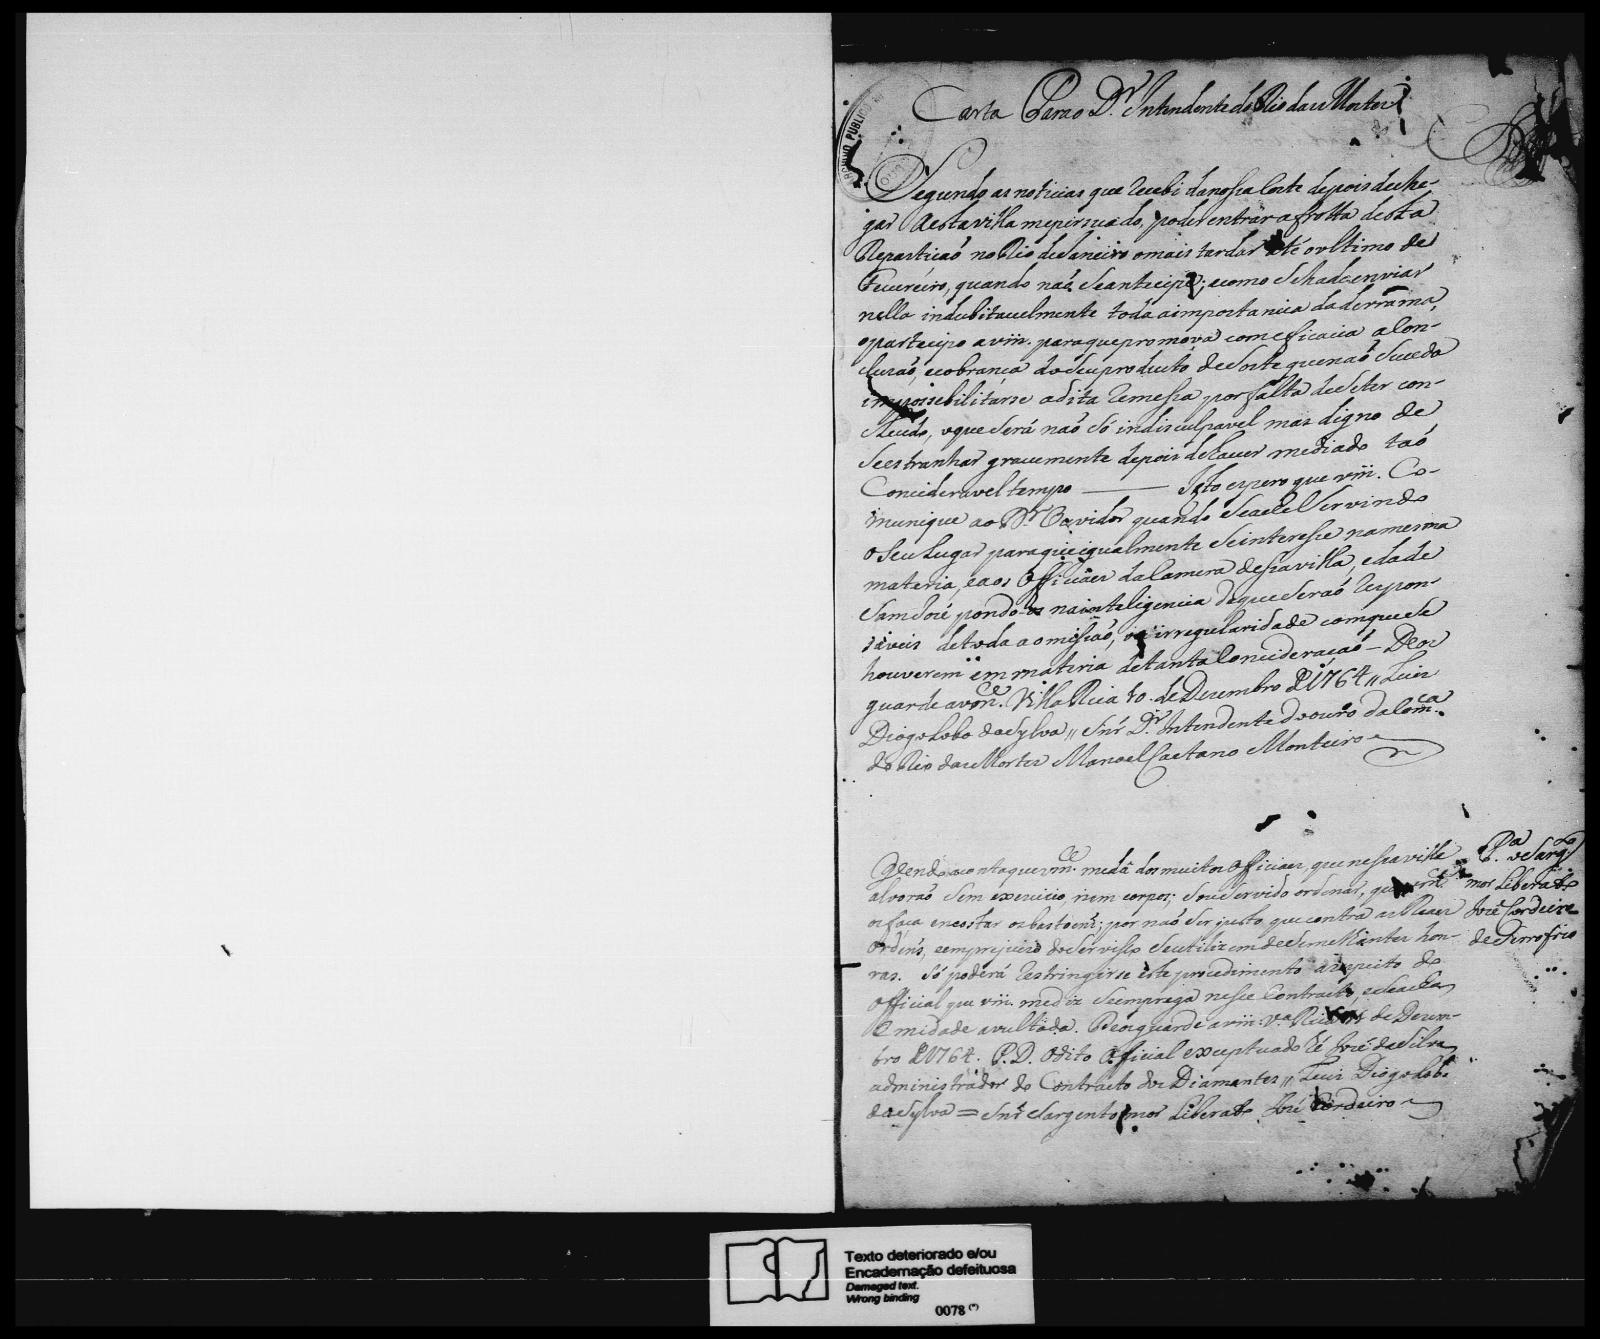 Carta Para o D.r Intendente do Rio das Mortes
ARCHIVO PUBLICO
Segundo as noticias que recebi da nossa Corte depois de che-
gar a esta villa me persuado, poder entrar a frotta desta
Repartiçaõ no Rio de Janeiro o mais tardar até o ultimo de
Fevereiro, quando naõ se antecipe; e como se ha de enviar
nella indubitavelmente toda a importancia da derrama,
o partecipo a vm. para que promova com eficacia a Con-
cluzaõ, e cobrança do seu producto de sorte que naõ suceda
impossibilitarse a dita remessa por falta de se ter con-
cluido, o que será naõ só indisculpavel mas digno de
se estranhar gravemente depois de haver mediado taõ
Concideravel tempo ——— Isto espero que vm. Co-
munique ao D.r Ouvidor quando se ache servindo
o seu Lugar para que igualmente se interesse na mesma
materia, e aos Officiaes da Camera dessa villa, e da de
Sam José pondo-os na inteligencia de que seraõ respon-
saveis de toda a omissaõ, ou irregularidade com que se
houverem em materia de tanta Concideraçaõ — Deos
guarde a vm.ce Villa Rica 10. de Dezembro de 1764 // Luis
Diogo Lobo da Sylva // Snr D.r Intendente do ouro da Com.ca
do Rio das Mortes Manoel Caetano Monteiro
Vendo a conta que vm.ce me dá dos muitos Officiaes, que nessa villa
alvoraõ sem exercicio, nem corpos; sou servido ordenar, que vm.ce
os faça encostar os bastoens; por naõ ser justo, que contra as Reaes
Ordens, e em prejuizo do servisso se utilizem de semelhantes hon-
ras. Só poderá restringirse este procedimento a respeito do
Official que vm. me diz se emprega nesse Contracto, e se acha
em idade avultada. Deos guarde a vm. V.a Rica de Dezem-
bro de 1764. P. D. O dito Official exceptuado hé José da Silva
administrador do Contracto dos Diamantes // Luis Diogo Lobo
da Sylva = Snr Sargento mor Liberato José Cordeiro
P.a o Sarg.to
mor Liberato
José Cordeiro
do Serro frio
Texto deteriorado e/ou
Encadernação defeituosa
Damaged text.
Wrong binding
0078 (*)